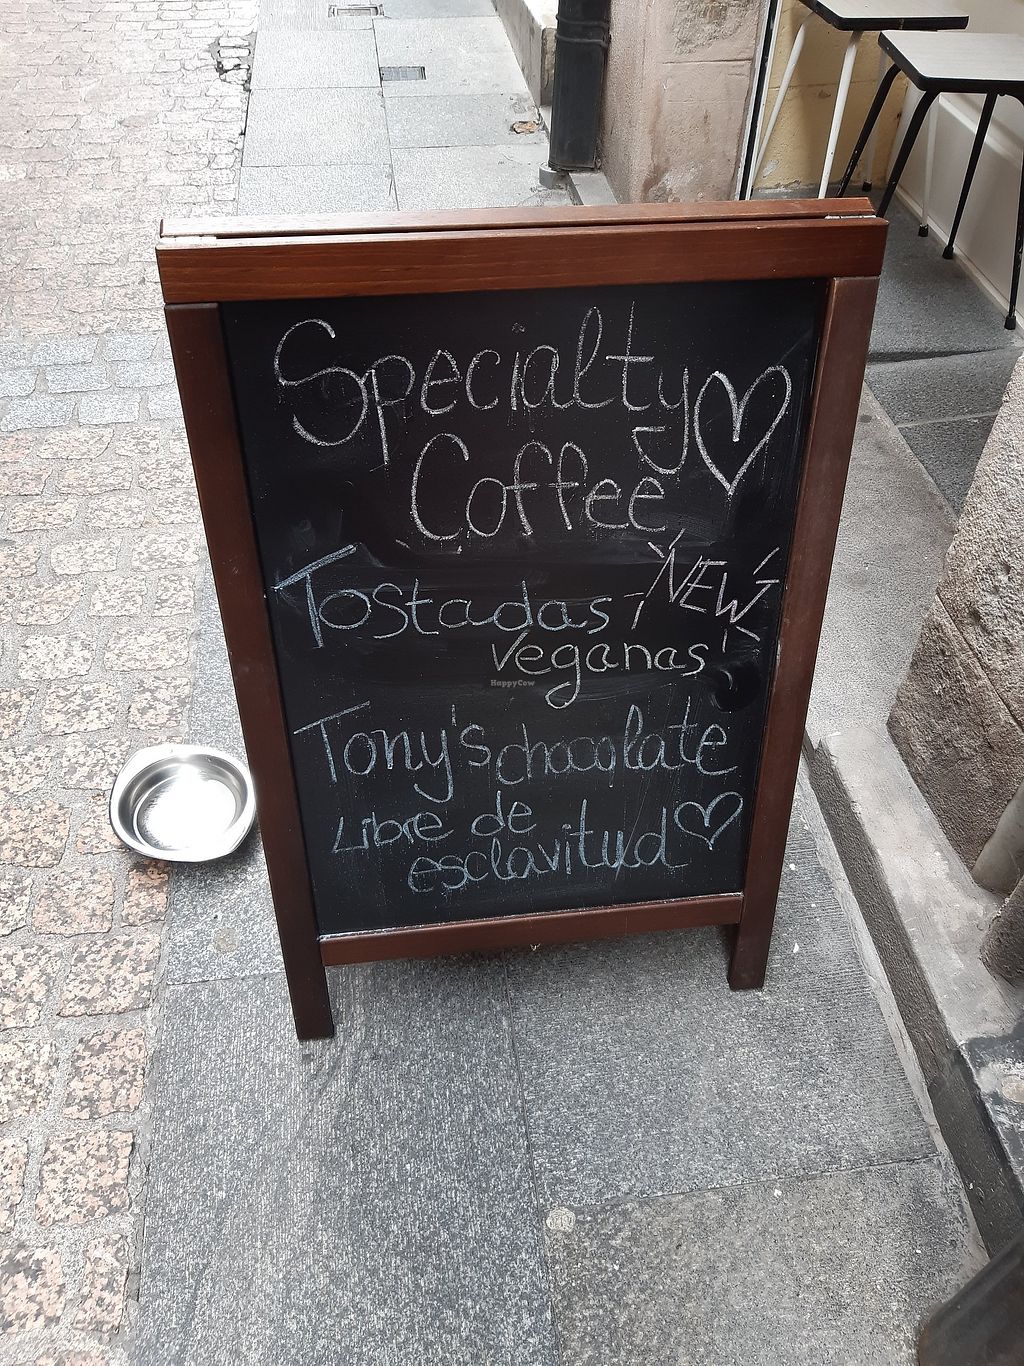 Specialty
Coffee
Tostadas ¡NEW
veganas!
HappyCow
Tony's chocolate
Libre de
esclavitud